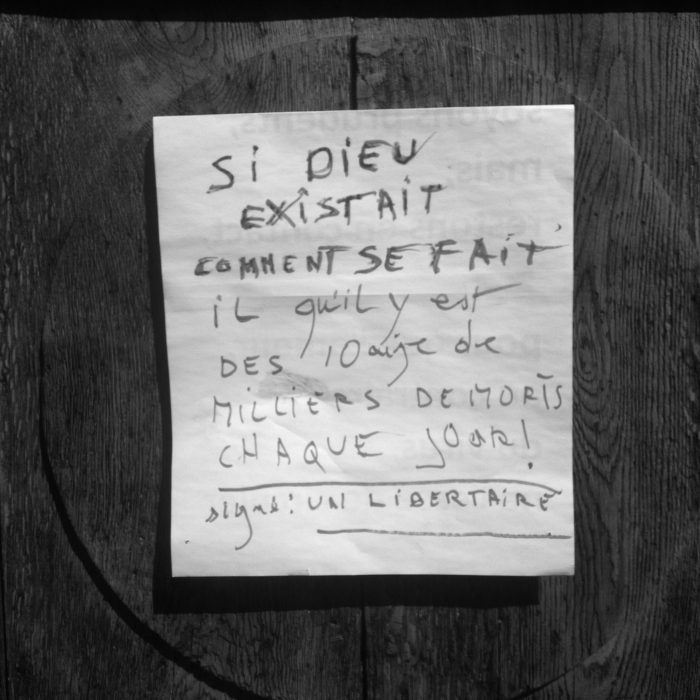 Si DiEU
EXiSTAiT
COMMENT SE FAiT
iL qu'iL y est
DES 10aine de
MiLLiERS DE MORTS
CHAQUE JOUR!
signé: UN LiBERTAiRE